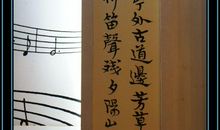 亭外古道邊芳草
柳笛聲殘夕陽山